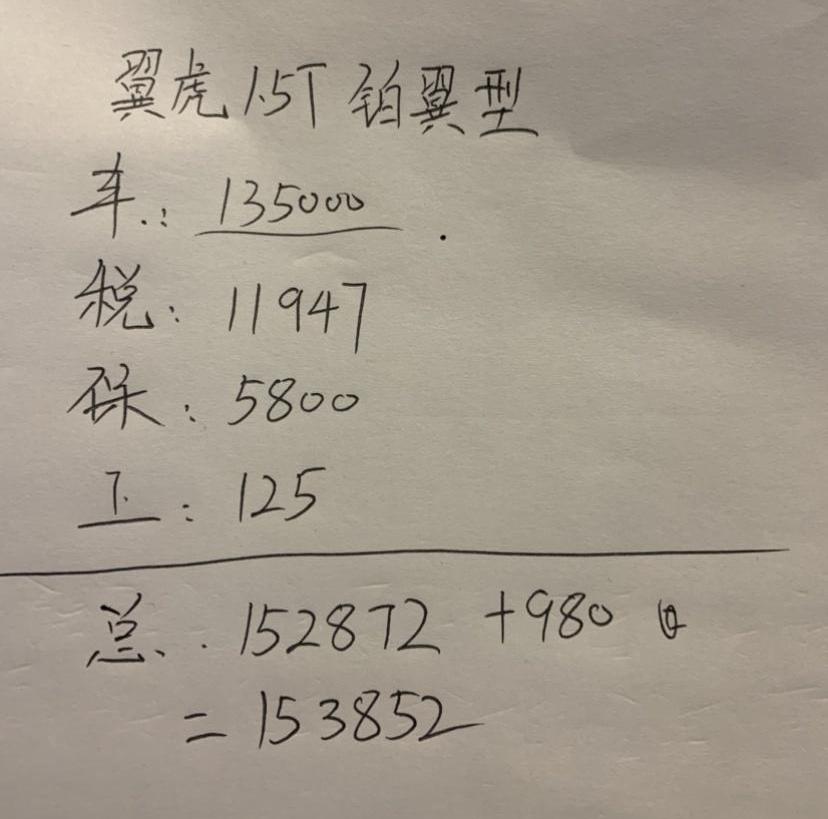 翼虎1.5T 铂翼型
车.: 135000 .
税: 11947
保: 5800
工: 125
总.. 152872 +980
= 153852